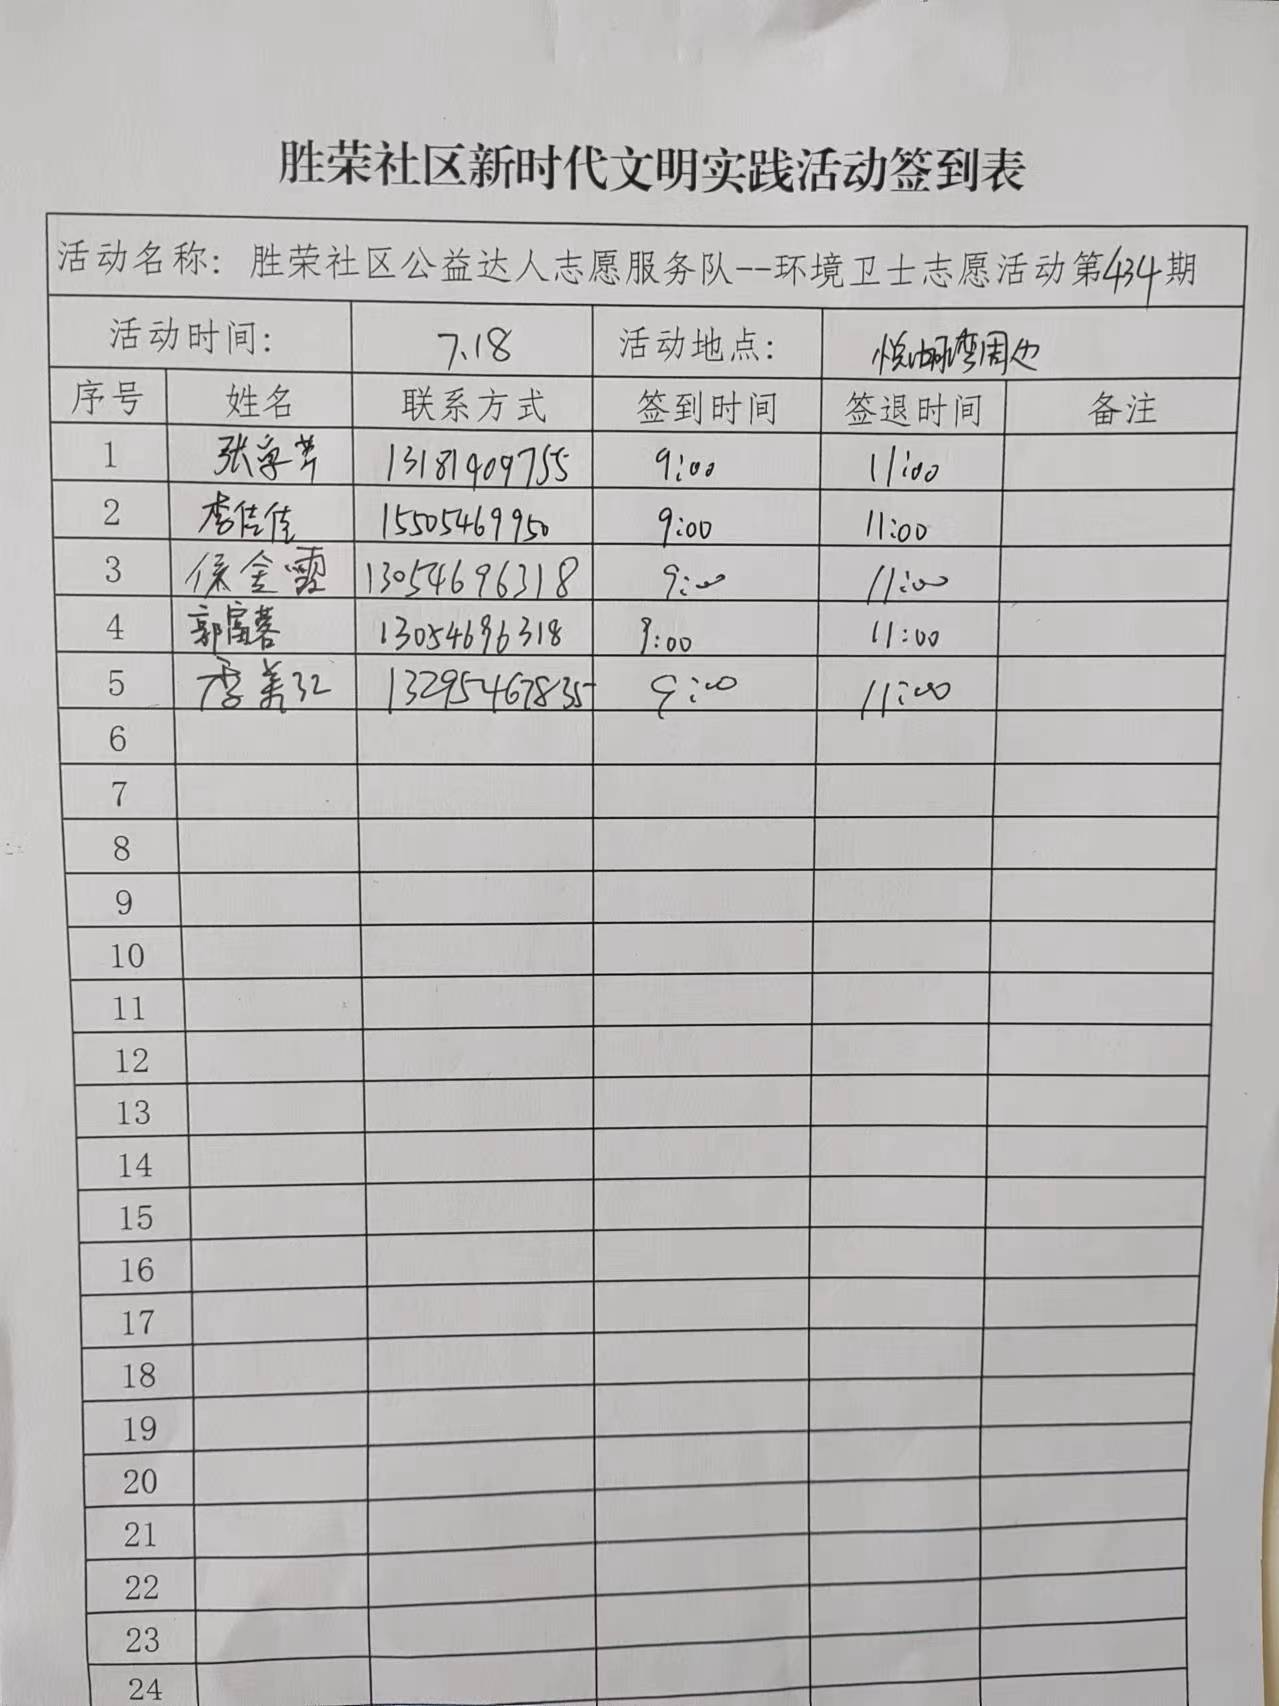 胜荣社区新时代文明实践活动签到表
活动名称：胜荣社区公益达人志愿服务队--环境卫士志愿活动第434期
活动时间： 7.18 活动地点： 悦湖湾周边
序号 姓名 联系方式 签到时间 签退时间 备注
1 张 13181909755 9:00 11:00
2 李佳佳 15505469950 9:00 11:00
3 金霞 13054696318 9:00 11:00
4 郭富蓉 13054696318 9:00 11:00
5 李美红 13295467835 9:00 11:00
6
7
8
9
10
11
12
13
14
15
16
17
18
19
20
21
22
23
24